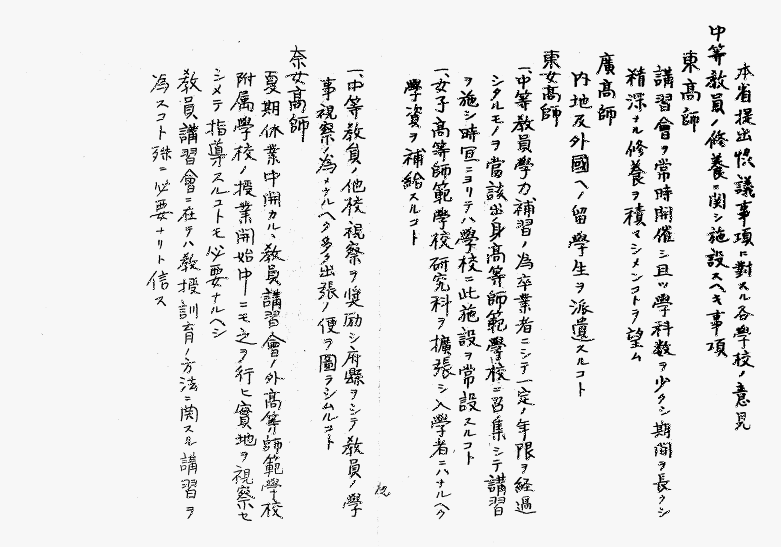 本省提出恊議事項ニ對スル各學校ノ意見
中等教員ノ修養ニ関シ施設スヘキ事項
東高師
講習會ヲ常時開催シ且ツ學科数ヲ少クシ期間ヲ長クシ
精深ナル修養ヲ積マシメンコトヲ望ム
廣高師
内地及外國ヘノ留學生ヲ派遣スルコト
東女高師
一、中等教員學力補習ノ為卒業者ニシテ一定ノ年限ヲ経過
シタルモノヲ當該出身高等師範學校ニ召集シテ講習
ヲ施シ時宜ニヨリテハ學校ニ此施設ヲ常設スルコト
一、女子高等師範學校研究科ヲ擴張シ入學者ニハナルヘク
學資ヲ補給スルコト
一、中等教員ノ他校視察ヲ奨励シ府縣ヲシテ教員ノ學
事視察ノ為メナルヘク多ク出張ノ便ヲ圖ラシムルコト
奈女高師
夏期休業中開カルヽ教員講習會ノ外高等師範學校
附属學校ノ授業開始中ニモ之ヲ行ヒ實地ヲ視察セ
シメテ指導スルコトモ必要ナルヘシ
教員講習會ニ在テハ教授訓育ノ方法ニ関スル講習ヲ
為スコト殊ニ必要ナリト信ス